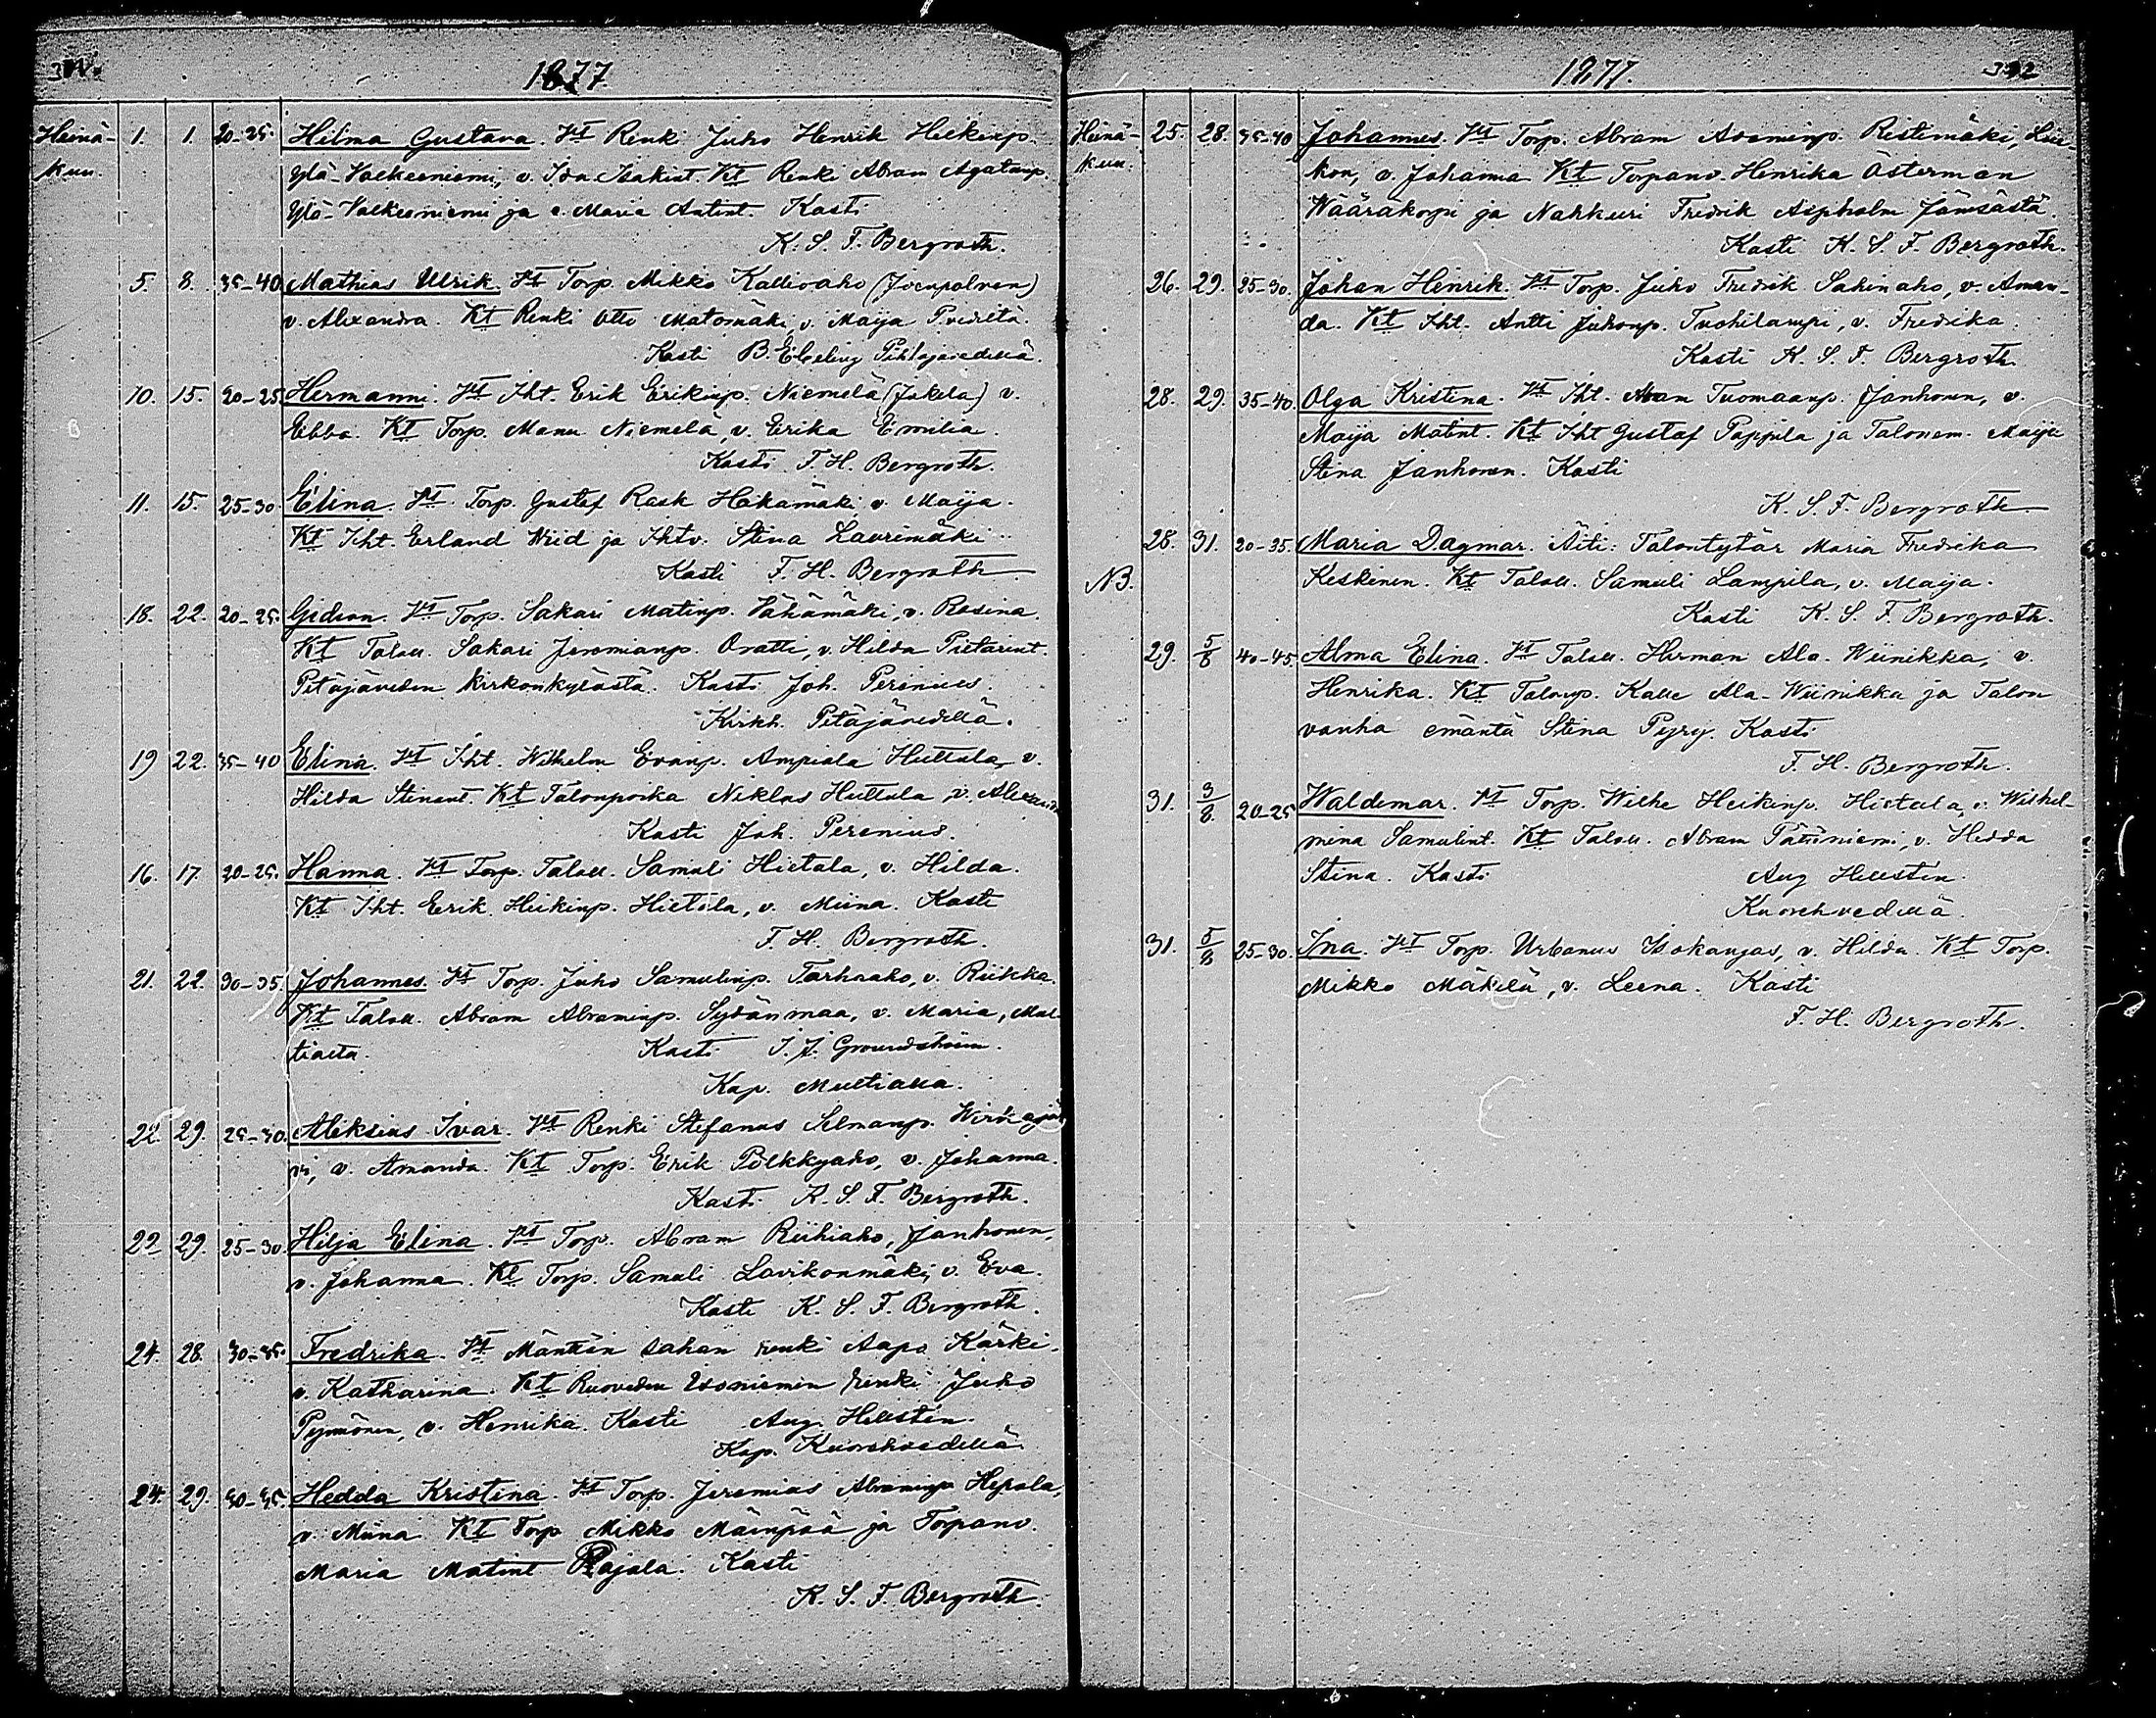 1877.
Heinä- 1. 1. 20-25. Hilma Gustava. Vt Renki Juho Henrik Heikinp.
kuu. Ylä-Valkeeniemi, v. Ida Isakint. Kt Renki Abram Agatanp.
Ylä-Valkeeniemi ja v. Maria Antint. Kasti
K. S. F. Bergroth.
5. 8. 35-40 Mathias Ulrik. Vt Torp. Mikko Kallioaho (Joenpolven)
v. Alexandra. Kt Renki Otto Matomäki, v. Maija
Kasti B. Pihlajavedellä.
10. 15. 20-25 Hermanni. Vt Iht. Erik Erikinp. Niemelä (Jokela) v.
Ebba. Kt Torp. Manu Niemelä, v. Erika Emilia.
Kasti F. H. Bergroth.
11. 15. 25-30 Elina. Vt Torp. Gustaf Rask Hakamäki, v. Maija.
Kt Iht. Erland Wiid ja Ihtv. Stina Laurimäki
Kasti F. H. Bergroth
18. 22. 20-25. Gideon. Vt Torp. Sakari Matinp. Vähämäki, v. Rosina.
Kt Talall. Sakari Jeremianp. Oratti, v. Hilda Pietarint.
Petäjäveden kirkonkylästä. Kasti Joh. Perenius.
Kirkh. Petäjävedellä.
19 22. 35-40 Elina. Vt Iht. Wilhelm Evanp. Ampiala Huttula, v.
Hilda Stinant. Kt Talonpoika Niklas Huttula, v. Alexandra
Kasti Joh. Perenius.
16. 17. 20-25. Hanna. Vt Torp. Talall. Samuli Hietala, v. Hilda.
Kt Iht. Eerik Heikinp. Hietala, v. Miina. Kasti
F. H. Bergroth.
21. 22. 30-35. Johannes. Vt Torp. Juho Samulinp. Tarhaaho, v. Riikka.
Kt Talall. Abram Abraminp. Sydänmaa, v. Maria, Mul-
tialta. Kasti I. J. Groundström.
Kap. Multialla.
22. 29. 25-30. Aleksius Ivar. Vt Renki Stefanus Selmanp. Wirkajär
vi, v. Amanda. Kt Torp. Erik Pölkkyaho, v. Johanna.
Kasti K. S. F. Bergroth.
22 29. 25-30 Hilja Elina. Vt Torp. Abram Riihiaho, Janhonen,
v. Johanna. Kt Torp. Samuli Lavikonmäki, v. Eva.
Kasti K. S. F. Bergroth.
24. 28. 30-35. Fredrika. Vt Mäntän sahan renki Aapo Kärki.
v. Katharina. Kt Ruoveden Usoniemin renki Juho
Pynnönen, v. Henrika. Kasti Aug. Hellstén.
Kap. Kuorehvedellä.
24. 29. 30-35. Hedda Kristina. Vt Torp. Jeremias Abraminp. Hepola,
v. Miina Kt Torp. Mikko Mäenpää ja Torpanv.
Maria Matint Rajala. Kasti
K. S. F. Bergroth.
1877. 302
Heinä- 25. 28. 35-40 Johannes. Vt Torp. Abram Ristimäki, Lius
kuu. kon, v. Johanna Kt Torpanv. Henrika Österman
Wääräkorpi ja Nahkuri Fredrik Aspholm Jämsästä.
Kasti K. S. F. Bergroth.
26. 29. 25-30. Johan Henrik. Vt Torp. Juho Fredrik Sakinaho, v. Aman-
da. Kt Iht. Antti Juhonp. Tuohilampi, v. Fredrika.
Kasti K. S. F. Bergroth.
28. 29. 35-40 Olga Kristina. Vt Iht. Abram Tuomaanp. Janhonen, v.
Maija Matint. Kt Iht Gustaf Pappila ja Talonem. Maija
Stina Janhonen. Kasti
K. S. F. Bergroth
28. 31. 20-35. Maria Dagmar. Äiti: Talontytär Maria Fredrika
NB. Keskinen. Kt Talall. Samuli Lampila, v. Maija.
Kasti K. S. F. Bergroth.
29. 5/8 40-45 Alma Elina. Vt Talall. Herman Ala-Wiinikka, v.
Henrika. Kt Talonp. Kalle Ala-Wiinikka ja Talon
vanha emäntä Stina Pyry. Kasti
F. H. Bergroth.
31. 3/8 20-25 Waldemar. Vt Torp. Wilhe Heikinp. Hietala, v. Wilhel-
mina Samulint. Kt Talall. Abram v. Hedda
Stina. Kasti Aug Hellstén.
Kuorehvedellä.
31. 5/8 25-30. Ina. Vt Torp. Urbanus Isokangas, v. Hilda. Kt Torp.
Mikko Mäkelä, v. Leena. Kasti
F. H. Bergroth.